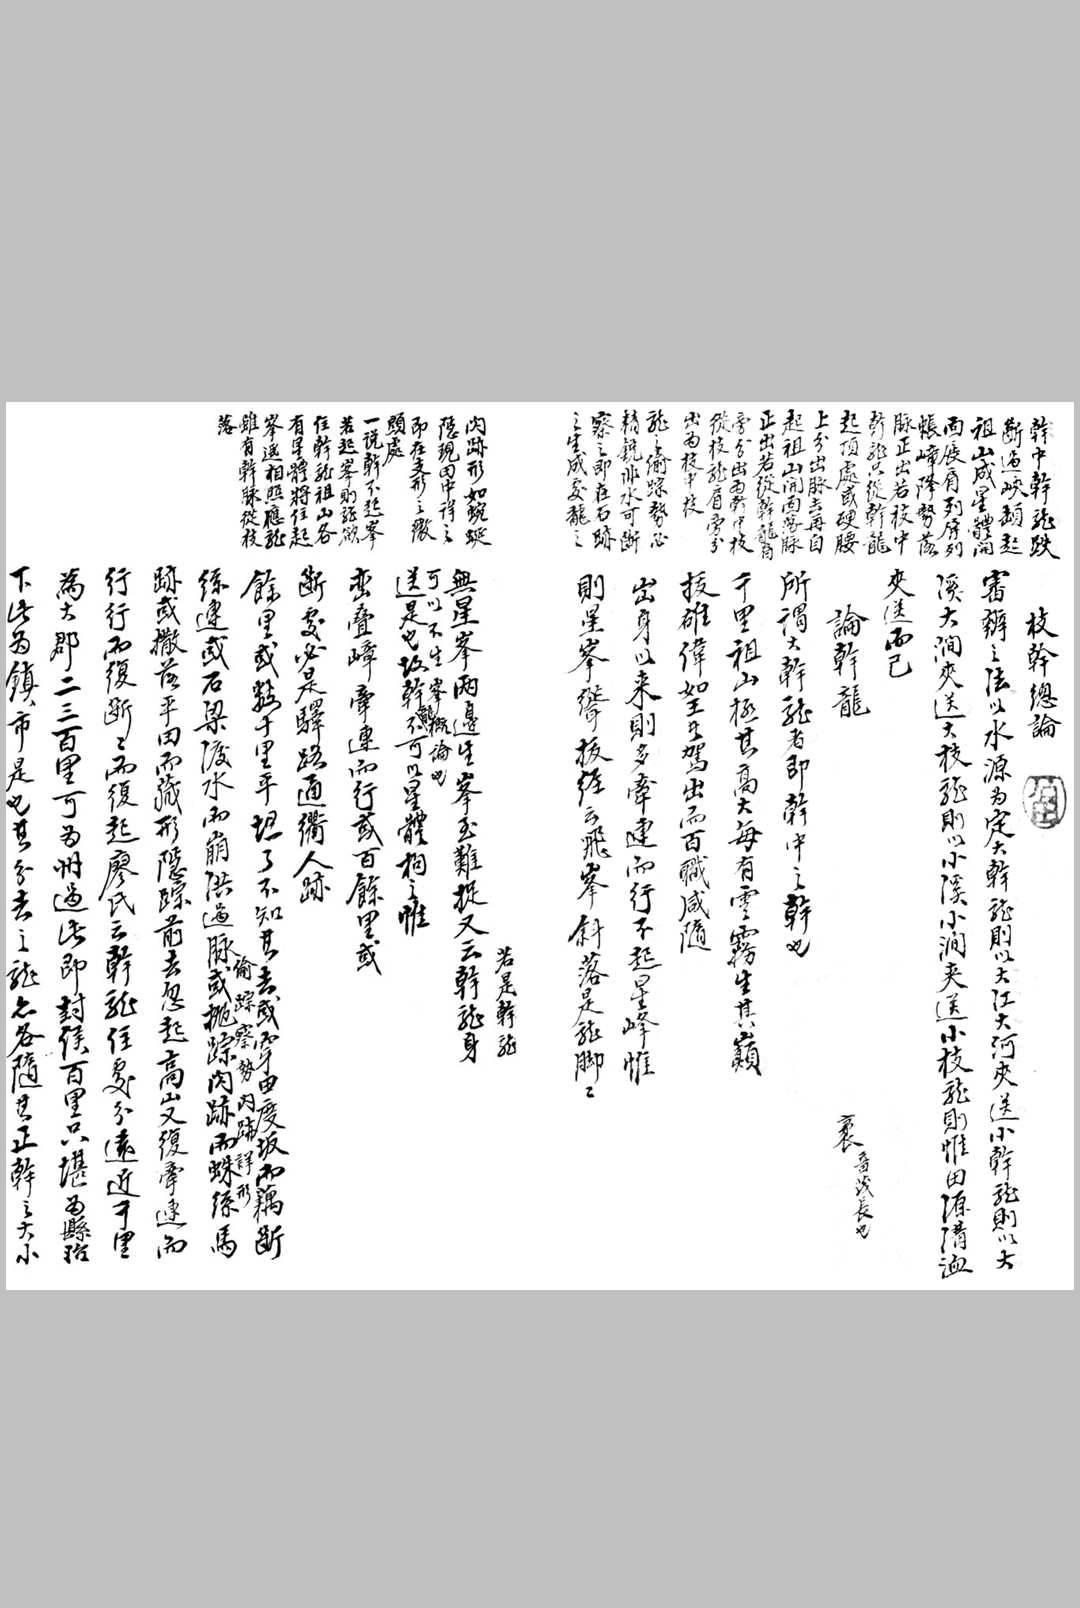 枝幹總論
審辦之法以水源为定大幹龍則以大江大河夾送小幹龍則以大
溪大澗夾送大枝龍則以小溪小澗夾送小枝龍則惟田源溝洫
夾送而已
論幹龍
裹 音 長也
所謂大幹龍者即幹中之幹也
千里祖山極其高大每有雲霧生其巔
拔雄偉如王者駕出而百職咸隨
出身以来則多牽連而行不起星峰惟
則星峯聳拔經云飛峯斜落是龍脚〻
幹中幹龍跌
断過峽頭起
祖山成星體開
面展肩列屏列
帳嶂降勢落
脉正出若枝中
幹龍只從幹龍
起頂處或硬腰
上分出脉去再自
起祖山開面落脉
正出若從幹龍肩
旁分出為幹中枝
從枝龍肩旁分
出為枝中枝
龍之偷踪勢必
精銳非水可断
察之即在石跡
之生成處龍之
若是幹龍
無星峯兩邊生峯至難捉又云幹龍身
可以不生峯概論也
送是也故幹龍不可以星體拘之惟
峦叠嶂牽連而行或百餘里或
断處必是驛路通衢人跡
餘里或数十里平坦了不知其去或穿田度坂而藕断
偷踪察勢 閃跡詳形
絲連或石梁渡水而崩洪過脉或抛踪閃跡而蛛絲馬
跡或撒落平田而藏形隱踪前去忽起高山又復牽連而
行行而復断〻而復起廖氏云幹龍住處分遠近千里
為大郡二三百里可为州過此即封侯百里只堪为縣治
下此为鎮市是也其分去之龍亦各隨其正幹之大小
閃跡形如蜿蜒
隱現田中詳之
即在支形之徴
頭處
一说幹不起峯
若起峯則龍欲
住幹龍祖山各
有星體將住起
峯遥相照應龍
雖有幹脉從枝
落